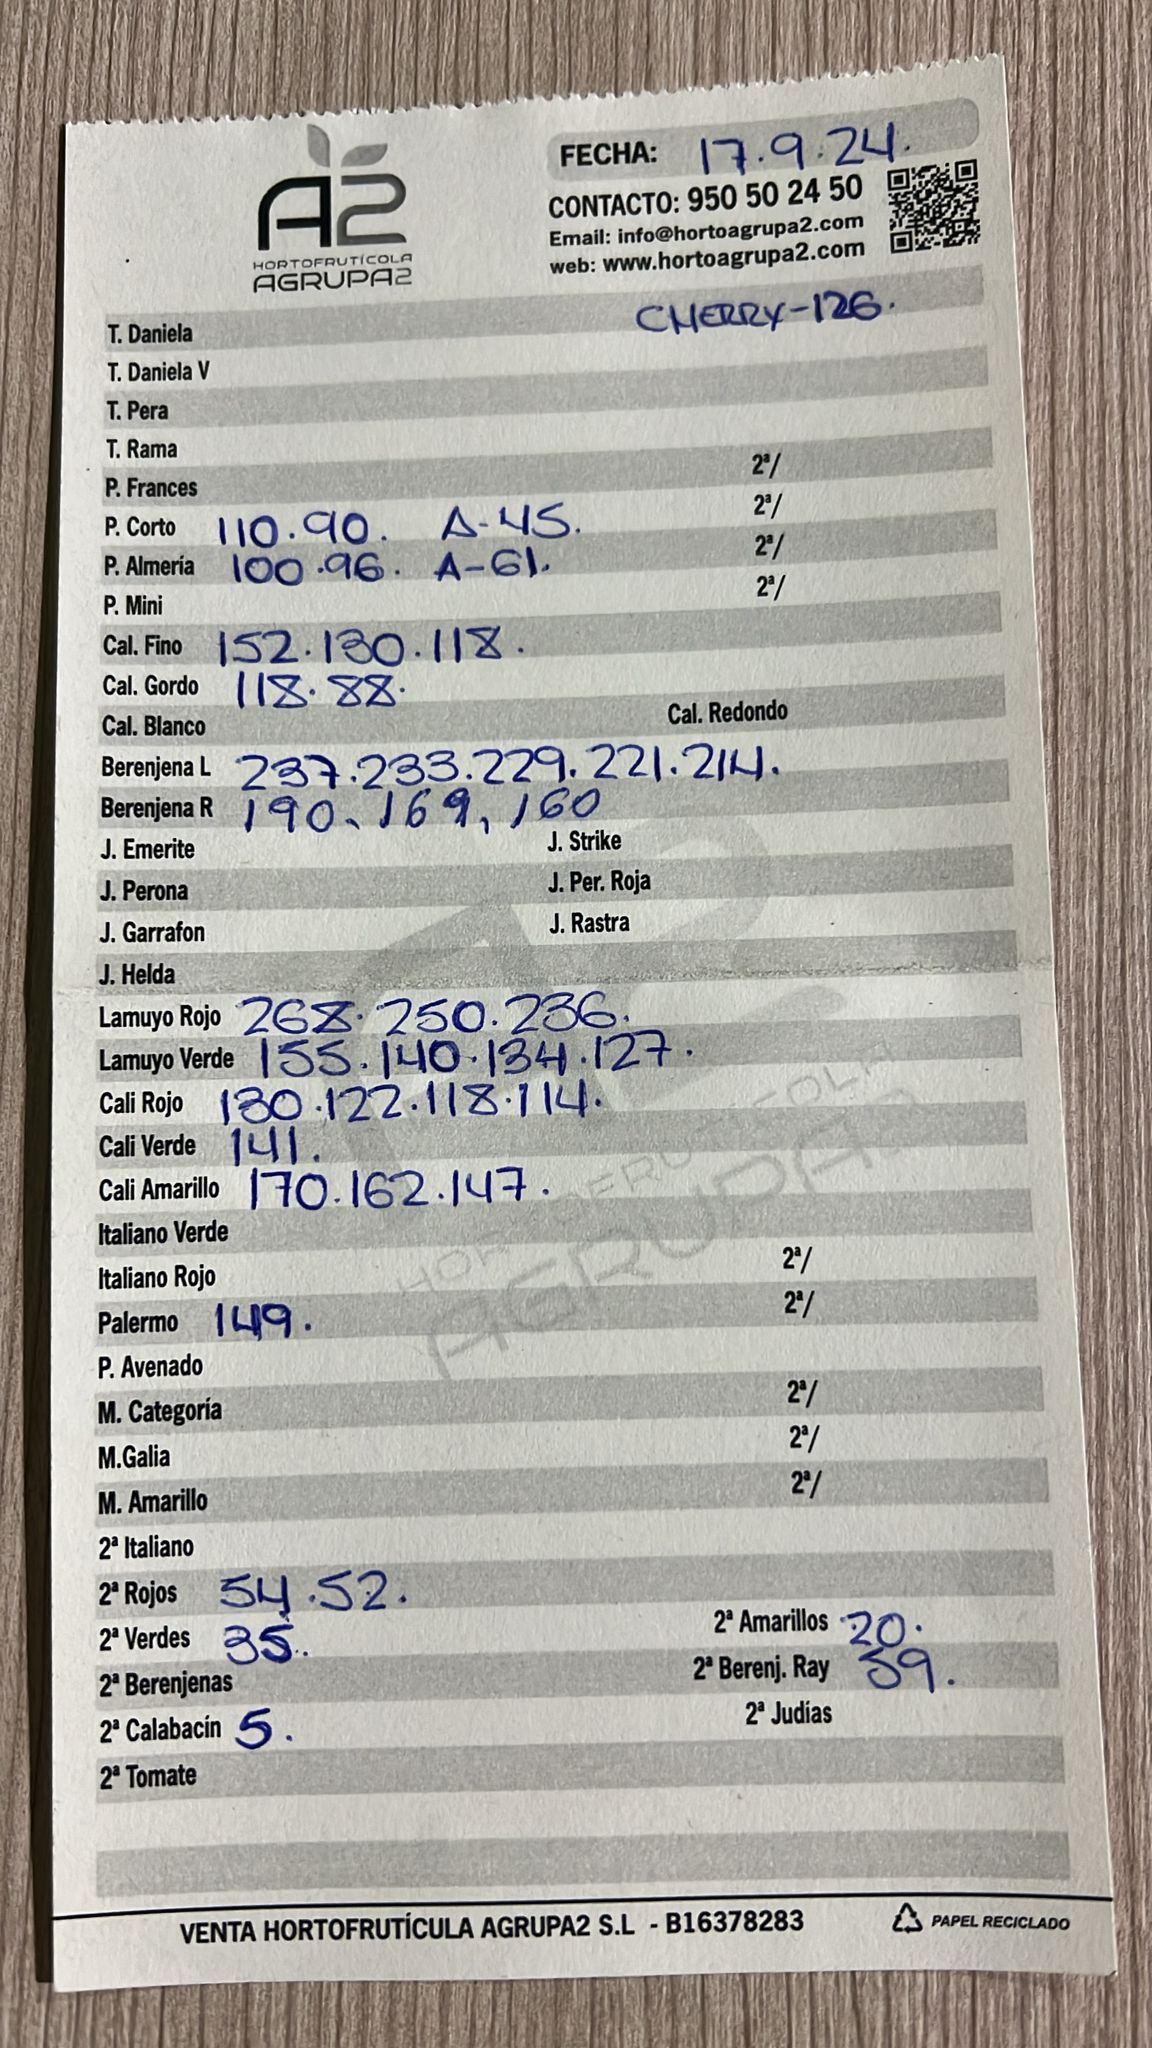 A2
HORTOFRUTÍCOLA
AGRUPA2
FECHA: 17.9.24.
CONTACTO: 950 50 24 50
Email: info@hortoagrupa2.com
web: www.hortoagrupa2.com
CHERRY-126.
T. Daniela
T. Daniela V
T. Pera
T. Rama
P. Frances 2ª/
P. Corto 110.90. A-45. 2ª/
P. Almería 100.96. A-61. 2ª/
P. Mini 2ª/
Cal. Fino 152.130.118.
Cal. Gordo 118.88.
Cal. Blanco Cal. Redondo
Berenjena L 237.233.229.221.214.
Berenjena R 190, 169, 160
J. Emerite J. Strike
J. Perona J. Per. Roja
J. Garrafon J. Rastra
J. Helda
Lamuyo Rojo 268.250.236.
Lamuyo Verde 155.140.134.127.
Cali Rojo 130.122.118.114.
Cali Verde 141.
Cali Amarillo 170.162.147.
Italiano Verde
Italiano Rojo 2ª/
Palermo 149. 2ª/
P. Avenado
M. Categoría 2ª/
M.Galia 2ª/
M. Amarillo 2ª/
2ª Italiano
2ª Rojos 54.52.
2ª Verdes 35. 2ª Amarillos 20.
2ª Berenjenas 2ª Berenj. Ray 59.
2ª Calabacín 5. 2ª Judías
2ª Tomate
VENTA HORTOFRUTÍCULA AGRUPA2 S.L - B16378283
PAPEL RECICLADO